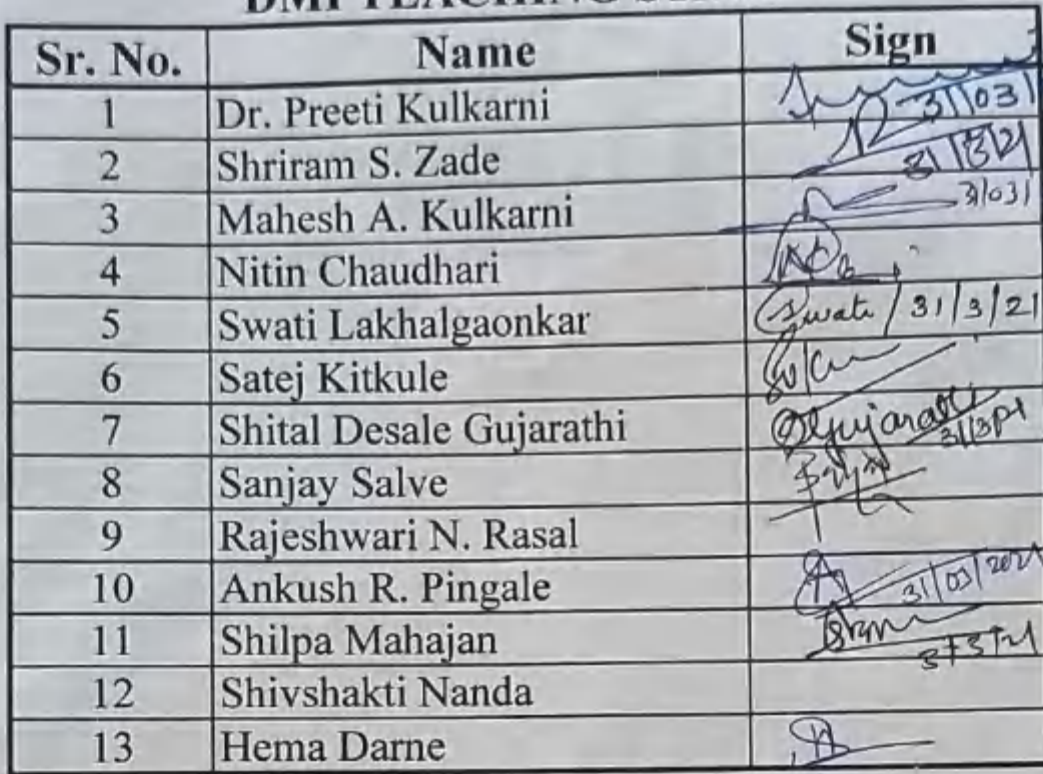 DMI TEACHING
Sr. No. Name Sign
1 Dr. Preeti Kulkarni 31/03
2 Shriram S. Zade 31/3/21
3 Mahesh A. Kulkarni 31/03
4 Nitin Chaudhari
5 Swati Lakhalgaonkar Swati / 31/3/21
6 Satej Kitkule
7 Shital Desale Gujarathi SGujarathi 31/3/21
8 Sanjay Salve
9 Rajeshwari N. Rasal
10 Ankush R. Pingale 31/03/2021
11 Shilpa Mahajan 31/3/21
12 Shivshakti Nanda
13 Hema Darne